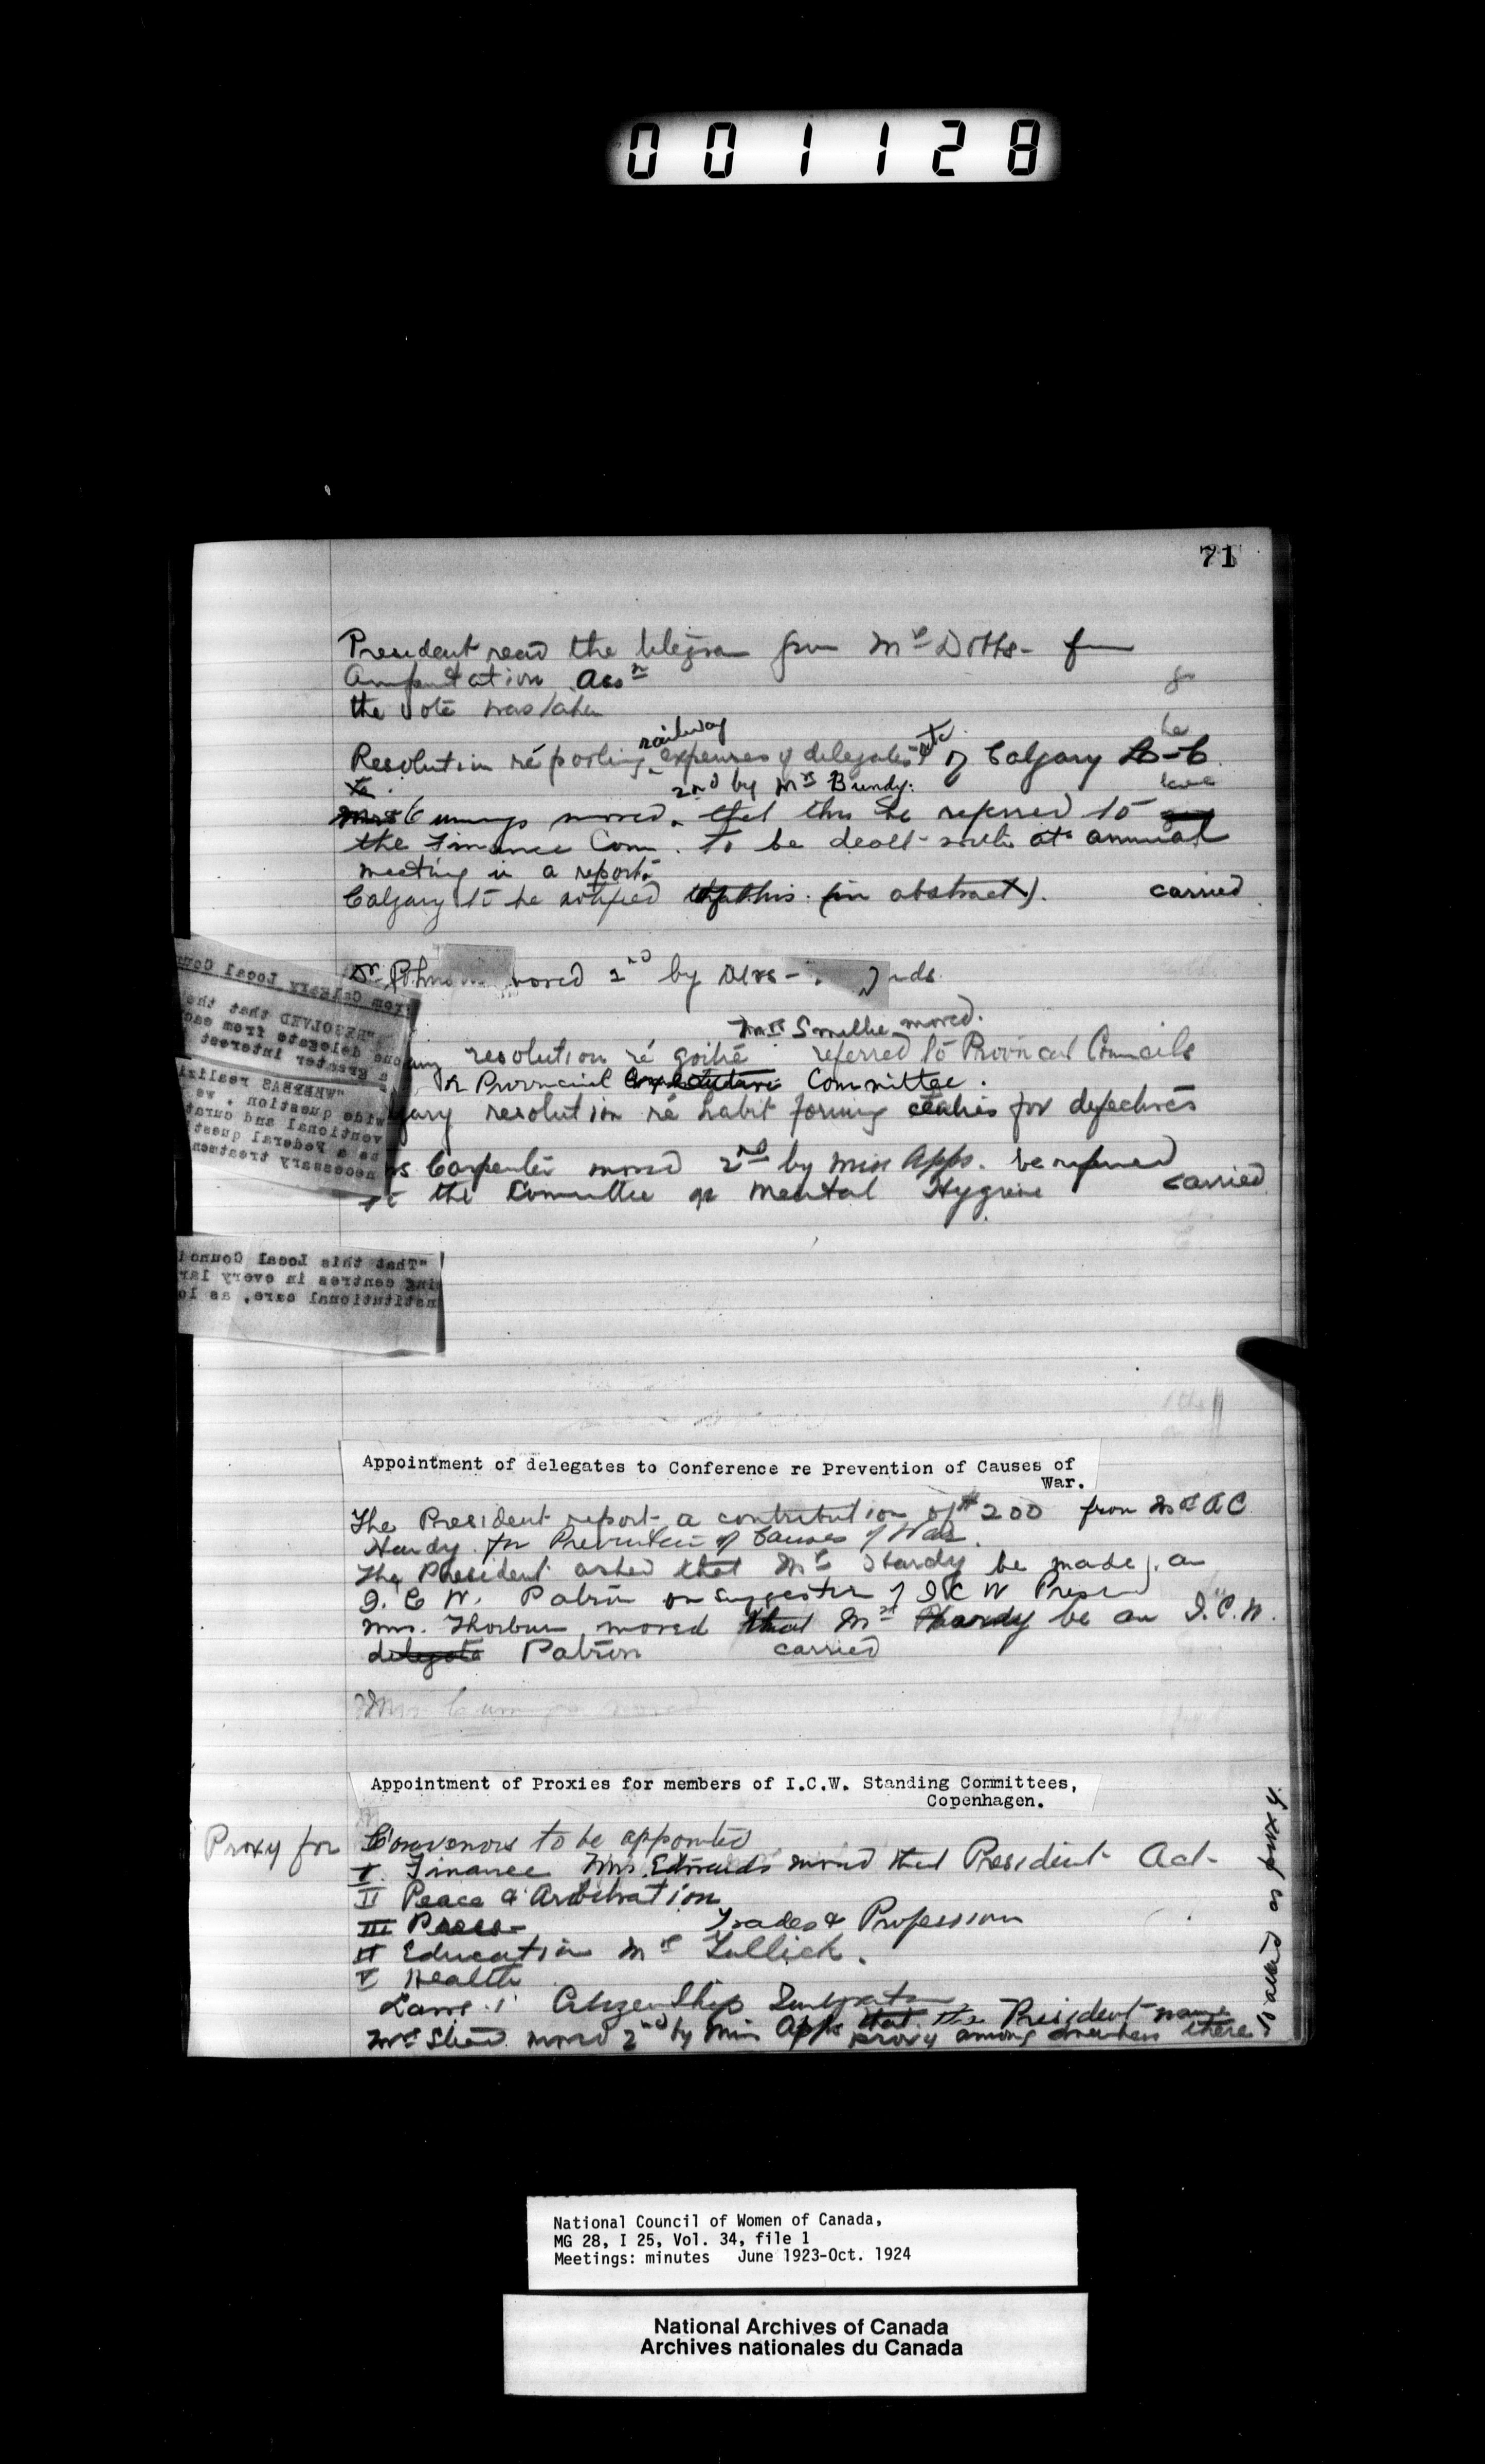 001128
71
President read the telegram from Mrs Dotts - from
Amputation Assn
the vote was taken
railway
Resolution ré pooling expenses of delegates etc of Calgary L-C
2nd by Mrs Bundy.
Mrs Cumings moved that this be referred to
the Finance Com. to be dealt with at annual
meeting in a report.
Calgary to be notified of this (in abstract). carried
moved 2nd by Mrs
Mrs Smillie moved.
resolution ré goitre referred to Provincial Councils
or Provincial Committee.
resolution ré habit forming centres for defectives
Carpenter moved 2nd by Miss Apps. be referred
to the Committee on Mental Hygiene carried
From Calgary Local Cou
"RESOLVED that the
one delegate from eac
a greater interest
"WHEREAS realizi
wide question, we
ventional and curat
be a Federal quest
necessary treatmen
"That this Local Counci
ing centres in every lar
nstitutional care, as lo
Appointment of delegates to Conference re Prevention of Causes of
War.
The President report a contribution of $200 from Mrs A C
Hardy for Prevention of Causes of War.
The President asked that Mrs Hardy be made an
I. C. W. Patron on suggestion of I C W Presid
Mrs. Thorburn moved that Mrs Hardy be an I.C.W.
delegate Patron carried
Mrs Cumings moved
Appointment of Proxies for members of I.C.W. Standing Committees,
Copenhagen.
Proxy for Convenors to be appointed
I. Finance Mrs. Edwards moved that President Act-
II Peace & Arbitration
III Press - Trades & Profession
IV Education Mrs
V Health
Laws Citizenship
Mrs moved 2nd by Miss Apps that the President name
proxy among members there
as proxy.
National Council of Women of Canada,
MG 28, I 25, Vol. 34, file 1
Meetings: minutes June 1923-Oct. 1924
National Archives of Canada
Archives nationales du Canada